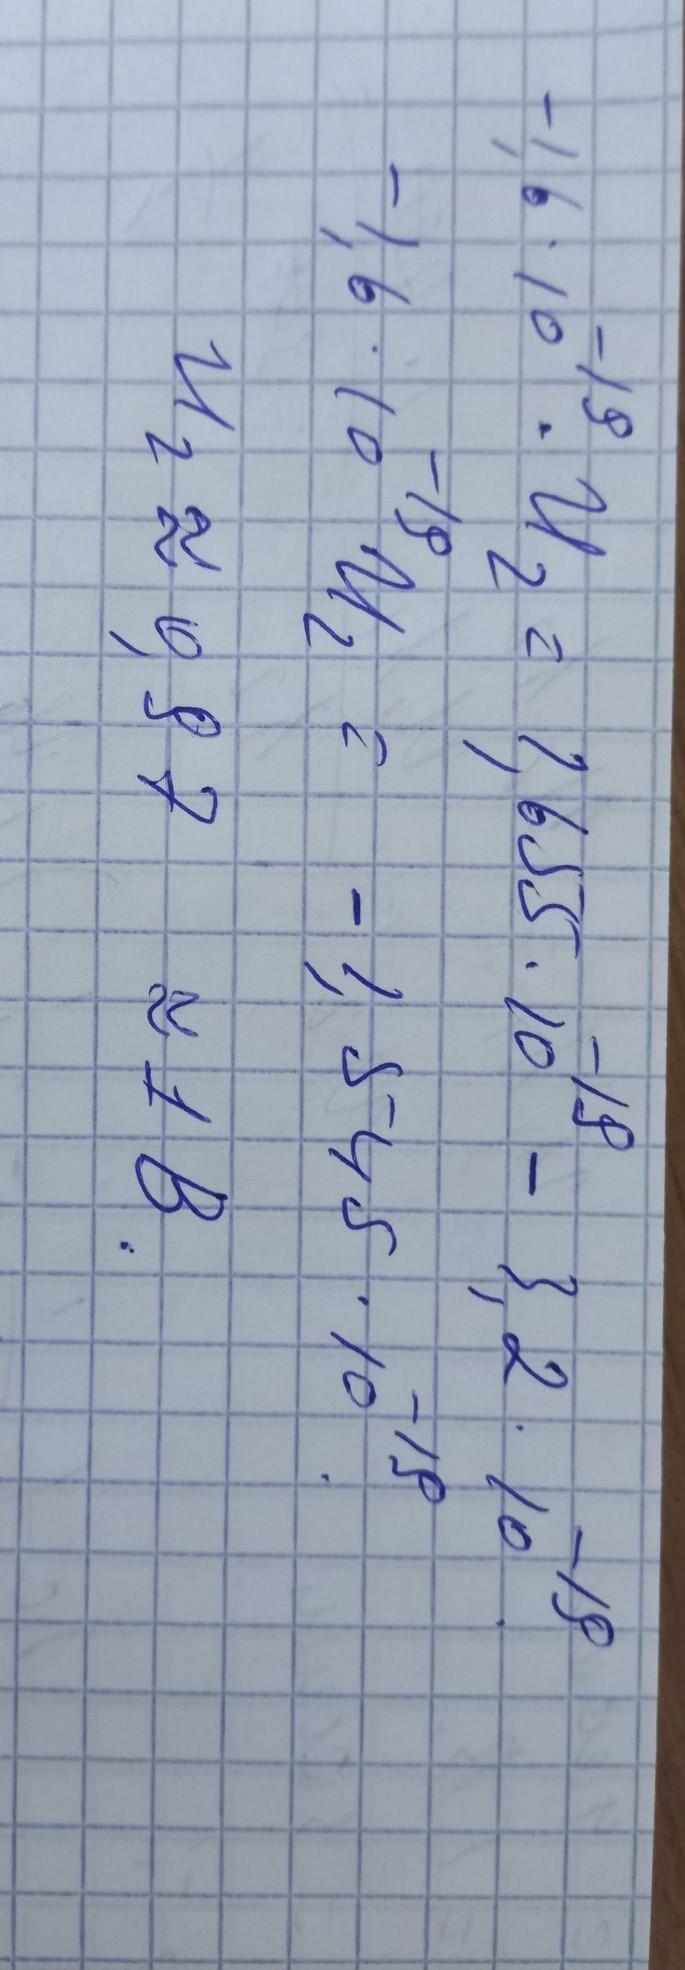 -1,6·10⁻¹⁹·U₂ = 1,655·10⁻¹⁹ - 3,2·10⁻¹⁹.
-1,6·10⁻¹⁹ U₂ = -1,545·10⁻¹⁹.
U₂ ≈ 0,97 ≈ 1 В.